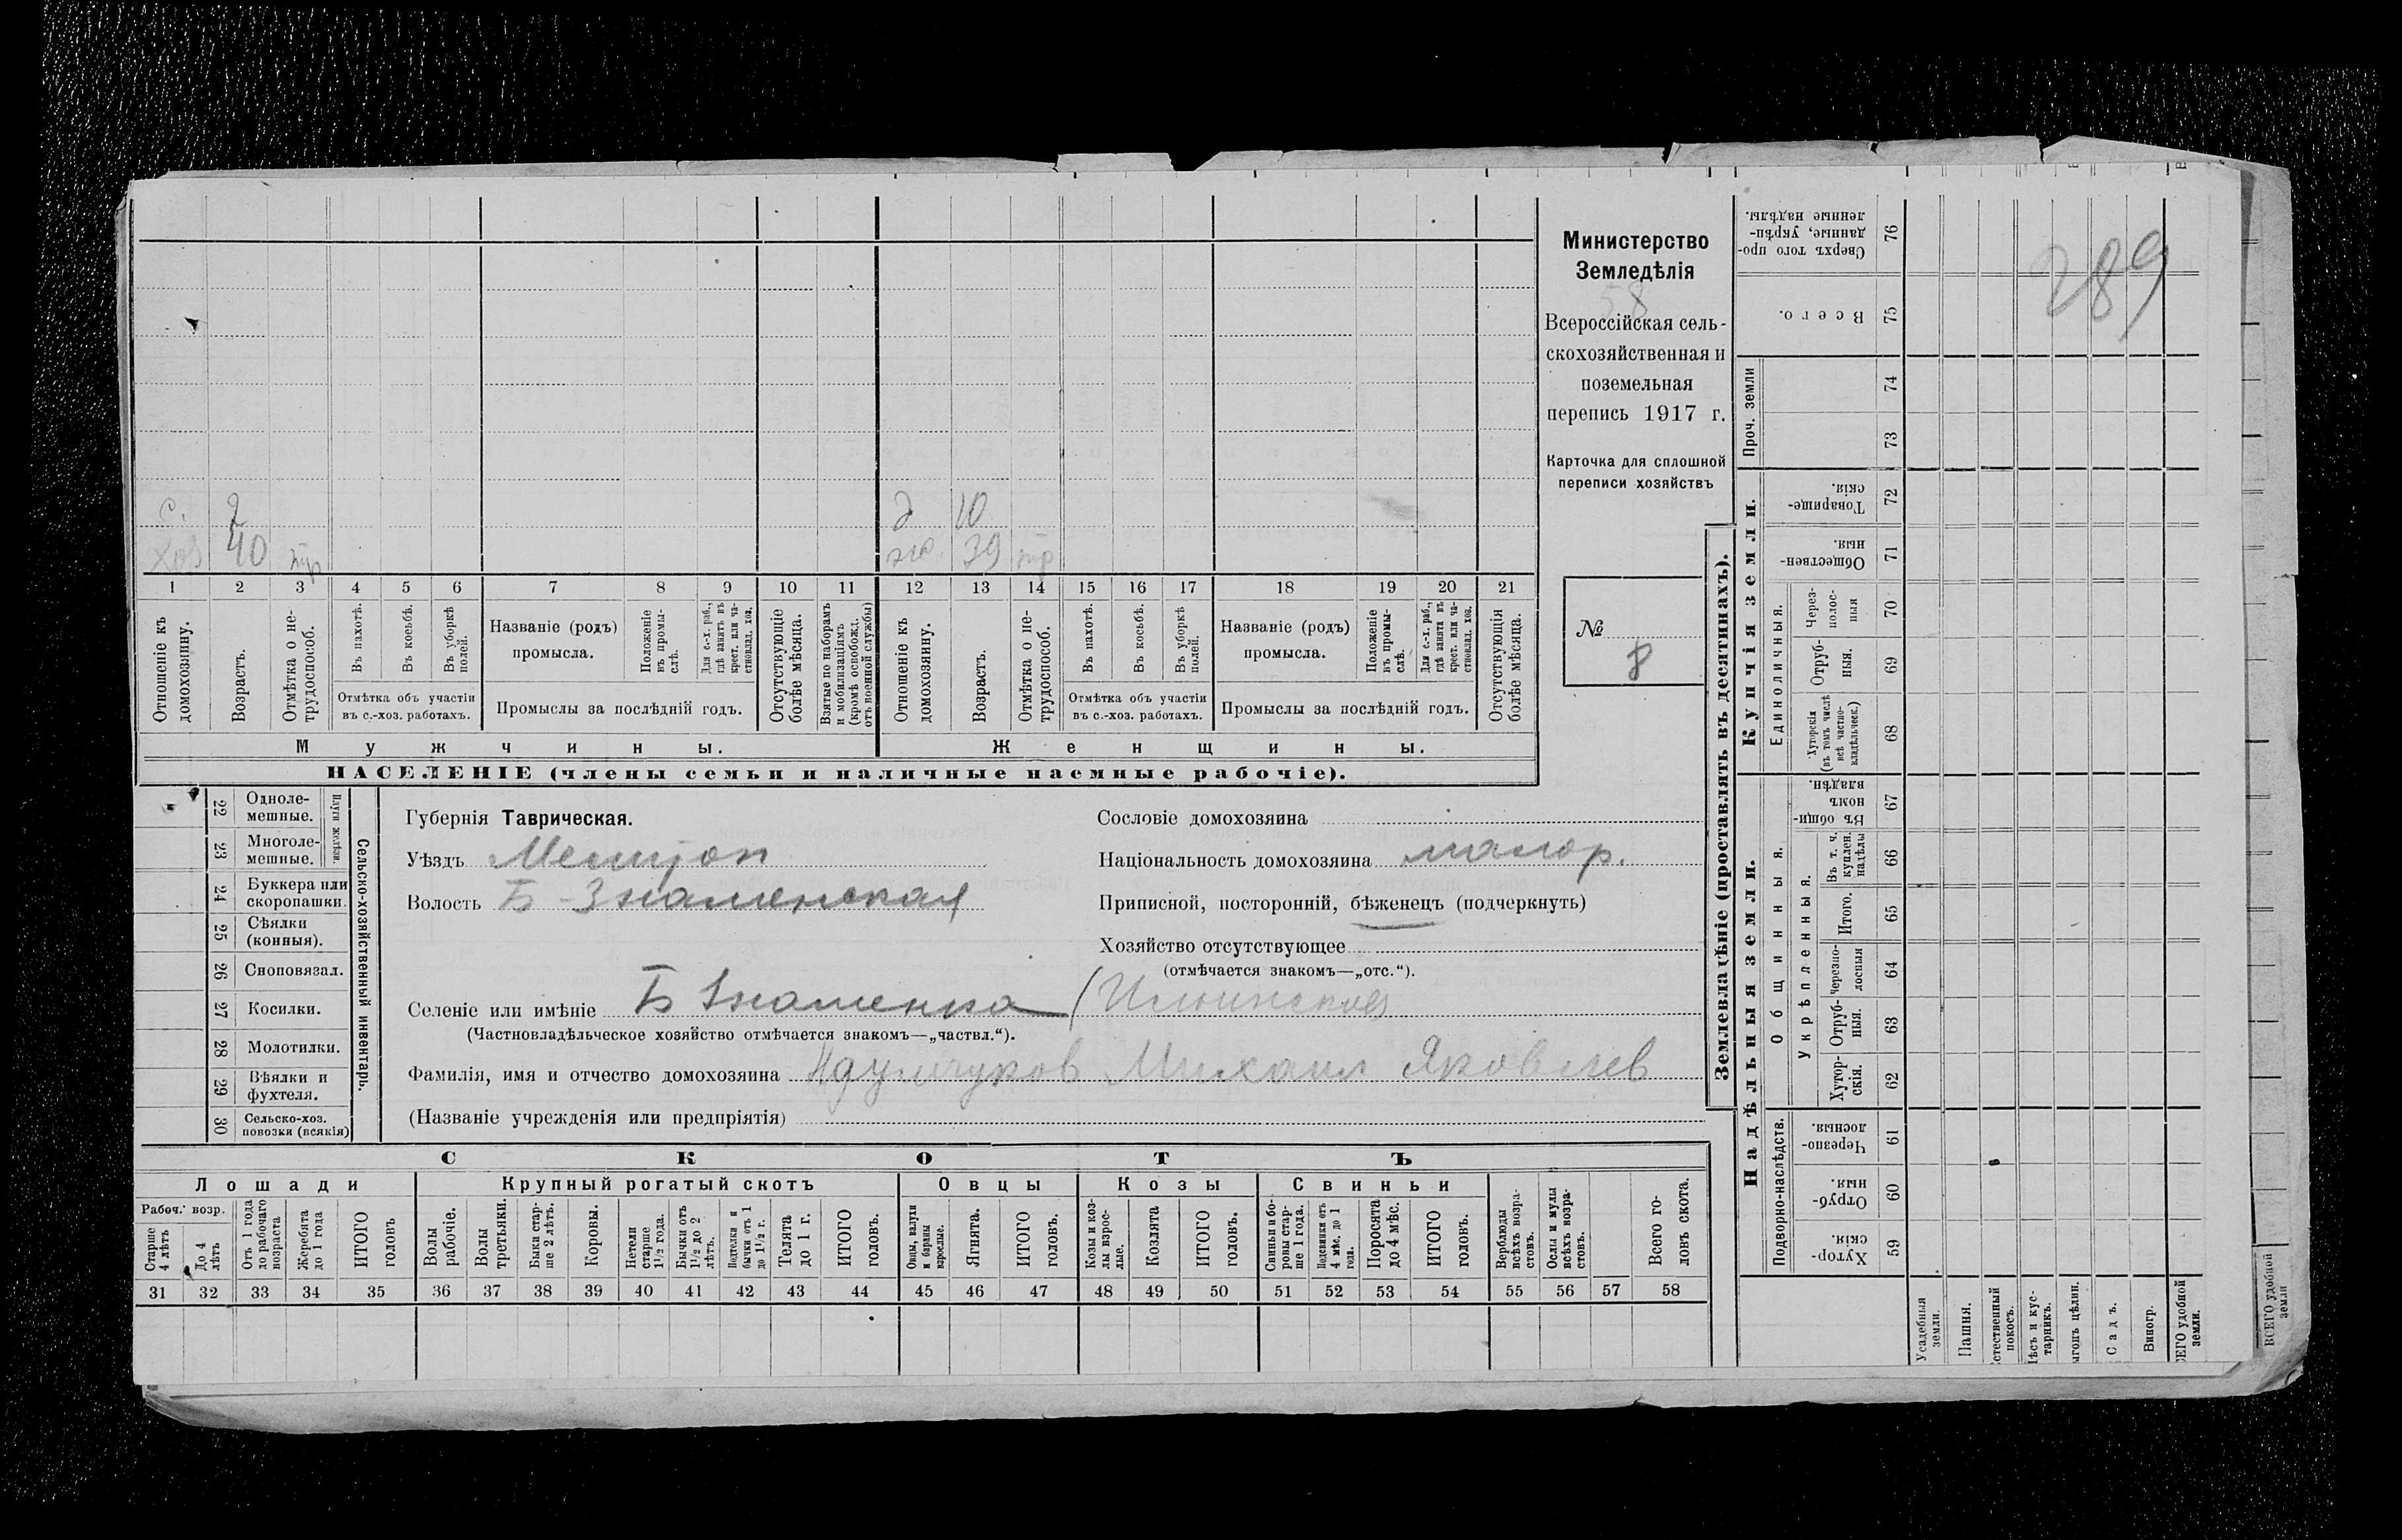 289
Министерство
Земледѣлія
58
Всероссійская сель-
скохозяйственная и
поземельная
перепись 1917 г.
Карточка для сплошной
переписи хозяйствъ
№
8
с. 2 д 10
хоз 40 тр ж. 39 тр
1 2 3 4 5 6 7 8 9 10 11 12 13 14 15 16 17 18 19 20 21
Отношеніе къ домохозяину.
Возрастъ.
Отмѣтка о не-трудоспособ.
Въ пахотѣ.
Въ косьбѣ.
Въ уборкѣ полей.
Отмѣтка объ участіи
въ с.-хоз. работахъ.
Названіе (родъ)
промысла.
Положеніе въ промы-слѣ.
Для с.-х. раб., гдѣ занятъ въ крест. или ча-стновлад. хоз.
Промыслы за послѣдній годъ.
Отсутствующіе болѣе мѣсяца.
Взятые по наборамъ и мобилизаціямъ (кромѣ освобожд. отъ военной службы)
Отношеніе къ домохозяину.
Возрастъ.
Отмѣтка о не-трудоспособ.
Въ пахотѣ.
Въ косьбѣ.
Въ уборкѣ полей.
Отмѣтка объ участіи
въ с.-хоз. работахъ.
Названіе (родъ)
промысла.
Положеніе въ промы-слѣ.
Для с.-х. раб., гдѣ занята въ крест. или ча-стновлад. хоз.
Промыслы за послѣдній годъ.
Отсутствующія болѣе мѣсяца.
Мужчины. Женщины.
НАСЕЛЕНІЕ (члены семьи и наличные наемные рабочіе).
22 Одноле-мешные.
23 Многоле-мешные.
Плуги желѣзн.
24 Буккера или скоропашки.
25 Сѣялки (конныя).
26 Сноповязал.
27 Косилки.
28 Молотилки.
29 Вѣялки и фухтеля.
30 Сельско-хоз. повозки (всякія)
Сельско-хозяйственный инвентарь.
Губернія Таврическая.
Уѣздъ
Волость Б-Знаменская
Сословіе домохозяина
Національность домохозяина малор.
Приписной, посторонній, бѣженецъ (подчеркнуть)
Хозяйство отсутствующее
(отмѣчается знакомъ—„отс.“).
Селеніе или имѣніе Б Знаменка (
(Частновладѣльческое хозяйство отмѣчается знакомъ—„частвл.“).
Фамилія, имя и отчество домохозяина Михаил Яковлев
(Названіе учрежденія или предпріятія)
СКОТЪ
Лошади Крупный рогатый скотъ Овцы Козы Свиньи
Рабоч. возр.
Старше 4 лѣтъ
До 4 лѣтъ
Отъ 1 года до рабочаго возраста
Жеребята до 1 года
ИТОГО головъ
Волы рабочіе.
Волы третьяки.
Быки стар-ше 2 лѣтъ.
Коровы.
Нетели старше 1½ года.
Бычки отъ 1½ до 2 лѣтъ.
Подтелки и бычки отъ 1 до 1½ г.
Телята до 1 г.
ИТОГО головъ.
Овцы, валухи и бараны взрослые.
Ягнята.
ИТОГО головъ.
Козы и коз-лы взрос-лые.
Козлята
ИТОГО головъ.
Свиньи и бо-ровы стар-ше 1 года.
Подсвинки отъ 4 мѣс. до 1 года.
Поросята до 4 мѣс.
ИТОГО головъ.
Верблюды всѣхъ возра-стовъ.
Ослы и мулы всѣхъ возра-стовъ.
Всего го-ловъ скота.
31 32 33 34 35 36 37 38 39 40 41 42 43 44 45 46 47 48 49 50 51 52 53 54 55 56 57 58
Землевладѣніе (проставлять въ десятинахъ).
Купчія земли.
Надѣльныя земли.
Сверхъ того про-данные, укрѣп-ленные надѣлы. 76
Всего. 75
Проч. земли
74
73
Товарище-скія. 72
Обществен-ныя. 71
Единоличныя.
Через-полос-ныя 70
Отруб-ныя. 69
Хуторскія (въ томъ числѣ всѣ частно-владѣльческ.) 68
Общинныя.
Въ общи-номъ владѣн. 67
Укрѣпленныя.
Въ т. ч. куплен. надѣлы 66
Итого. 65
Черезпо-лосныя 64
Отруб-ныя. 63
Хутор-скія. 62
Подворно-наслѣдств.
Черезпо-лосныя. 61
Отруб-ныя. 60
Хутор-скія. 59
Усадебныя земли.
Пашня.
стественный покосъ.
ѣсъ и кус-тарникъ.
ыгонъ цѣлин.
Садъ.
Виногр.
ЕГО удобной земли.
ВСЕГО удобной земли